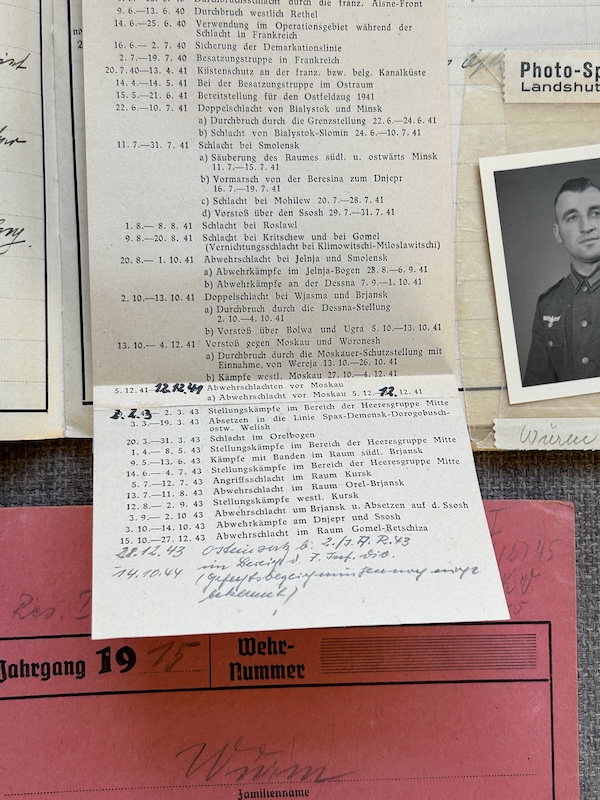 durch die franz. Aisne-Front
9. 6.—13. 6. 40 Durchbruch westlich Rethel
14. 6.—25. 6. 40 Verwendung im Operationsgebiet während der
Schlacht in Frankreich
16. 6.— 2. 7. 40 Sicherung der Demarkationslinie
2. 7.—19. 7. 40 Besatzungstruppe in Frankreich
20. 7. 40—13. 4. 41 Küstenschutz an der franz. bzw. belg. Kanalküste
14. 4.—14. 5. 41 Bei der Besatzungstruppe im Ostraum
15. 5.—21. 6. 41 Bereitstellung für den Ostfeldzug 1941
22. 6.—10. 7. 41 Doppelschlacht von Bialystok und Minsk
a) Durchbruch durch die Grenzstellung 22. 6.—24. 6. 41
b) Schlacht von Bialystok-Slomin 24. 6.—10. 7. 41
11. 7.—31. 7. 41 Schlacht bei Smolensk
a) Säuberung des Raumes südl. u. ostwärts Minsk
11. 7.—15. 7. 41
b) Vormarsch von der Beresina zum Dnjepr
16. 7.—19. 7. 41
c) Schlacht bei Mohilew 20. 7.—28. 7. 41
d) Vorstoß über den Ssosh 29. 7.—31. 7. 41
1. 8.— 8. 8. 41 Schlacht bei Roslawl
9. 8.—20. 8. 41 Schlacht bei Kritschew und bei Gomel
(Vernichtungsschlacht bei Klimowitschi-Miloslawitschi)
20. 8.— 1. 10. 41 Abwehrschlacht bei Jelnja und Smolensk
a) Abwehrkämpfe im Jelnja-Bogen 28. 8.—6. 9. 41
b) Abwehrkämpfe an der Dessna 7. 9.—1. 10. 41
2. 10.—13. 10. 41 Doppelschlacht bei Wjasma und Brjansk
a) Durchbruch durch die Dessna-Stellung
2. 10.—4. 10. 41
b) Vorstoß über Bolwa und Ugra 5. 10.—13. 10. 41
13. 10.— 4. 12. 41 Vorstoß gegen Moskau und Woronesh
a) Durchbruch durch die Moskauer-Schutzstellung mit
Einnahme, von Wereja 13. 10.—26. 10. 41
b) Kämpfe westl. Moskau 27. 10.—4. 12. 41
5. 12. 41—12.12.41 Abwehrschlachten vor Moskau
a) Abwehrschlacht vor Moskau 5. 12.—12. 12. 41
2. 3. 43 Stellungskämpfe im Bereich der Heeresgruppe Mitte
3. 3.—19. 3. 43 Absetzen in die Linie Spas-Demensk-Dorogobusch-
ostw. Welish
20. 3.—31. 3. 43 Schlacht im Orelbogen
1. 4.— 8. 5. 43 Stellungskämpfe im Bereich der Heeresgruppe Mitte
9. 5.—13. 6. 43 Kämpfe mit Banden im Raum südl. Brjansk
14. 6.— 4. 7. 43 Stellungskämpfe im Bereich der Heeresgruppe Mitte
5. 7.—12. 7. 43 Angriffsschlacht im Raum Kursk
13. 7.—11. 8. 43 Abwehrschlacht im Raum Orel-Brjansk
12. 8.— 2. 9. 43 Stellungskämpfe westl. Kursk
3. 9.— 2. 10 43 Abwehrschlacht um Brjansk u. Absetzen auf d. Ssosh
3. 10.—14. 10. 43 Abwehrkämpfe am Dnjepr und Ssosh
15. 10.—27. 12. 43 Abwehrschlacht im Raum Gomel-Retschiza
28.12.43 Osteinsatz b. 2./J.R.
14.10.44 im Bereich d. 7. Inf. Div.
bekannt)
Photo-Sp
Landshut
Wurm
Jahrgang 19 15
Wehr-
Nummer
Wurm
Familienname